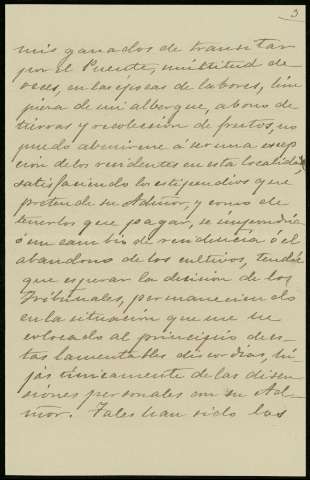 3
mis ganados de transitar
por el Puente, multitud de
veces, en las épocas de labores, lim
pieza de mi albergue, abono de
tierras y recolección de frutos, no
puedo abenirme á ser una escep
cion de los residentes en esta localidad,
satisfaciendo los estipendios que
pretende su Admor, y como de
tenerlos que pagar, se impondria
ó un cambio de residencia ó el
abandono de los cultivos, tendré
que esperar la decision de los
Tribunales, permaneciendo
en la situación que me he
colocado al principio de es-
tas lamentables discordias, hi
jas únicamente de las disen
siones personales con su Ad-
mor. Tales han sido las